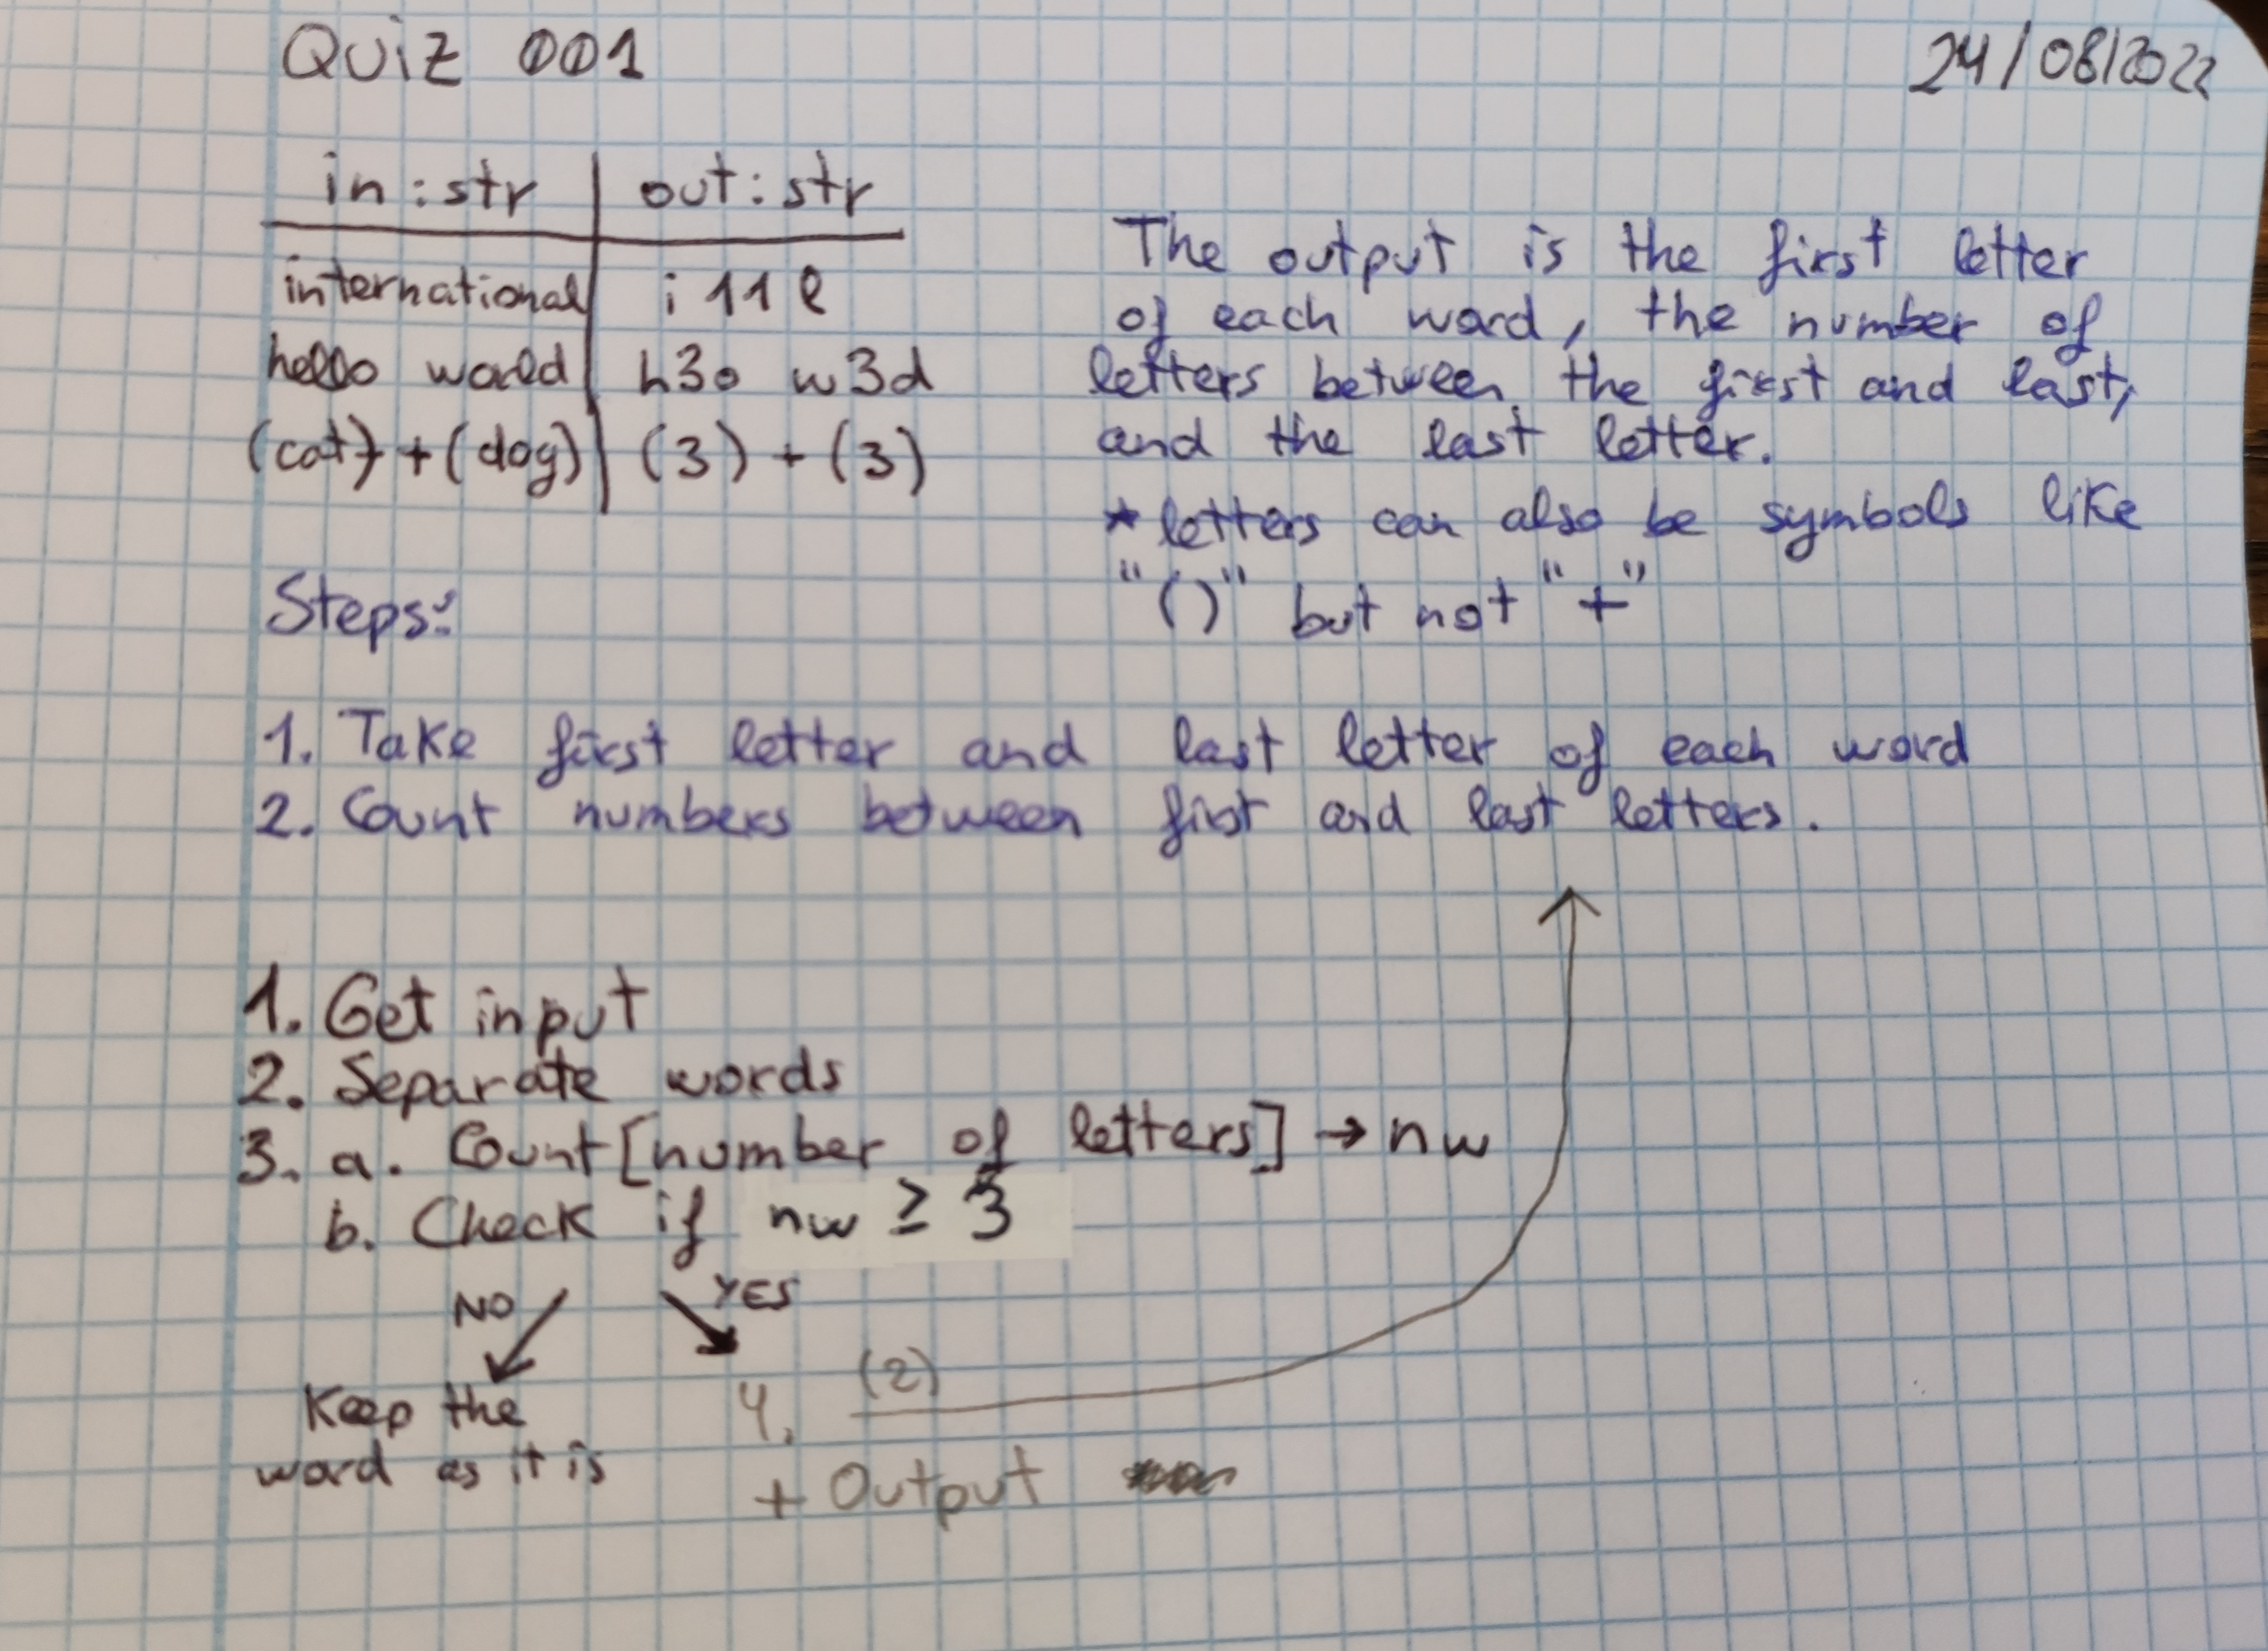 QUiZ 001
24/08/2022
in : str | out : str
international | i 11 l
hello world | h3o w3d
(cat) + (dog) | (3) + (3)
The output is the first letter
of each word, the number of
letters between the first and last,
and the last letter.
* letters can also be symbols like
"()" but not "+"
Steps:
1. Take first letter and last letter of each word
2. Count numbers between first and last letters.
1. Get input
2. Separate words
3. a. Count [number of letters] → nw
b. Check if nw ≥ 3
NO YES
Keep the
word as it is
4. (2)
+ Output